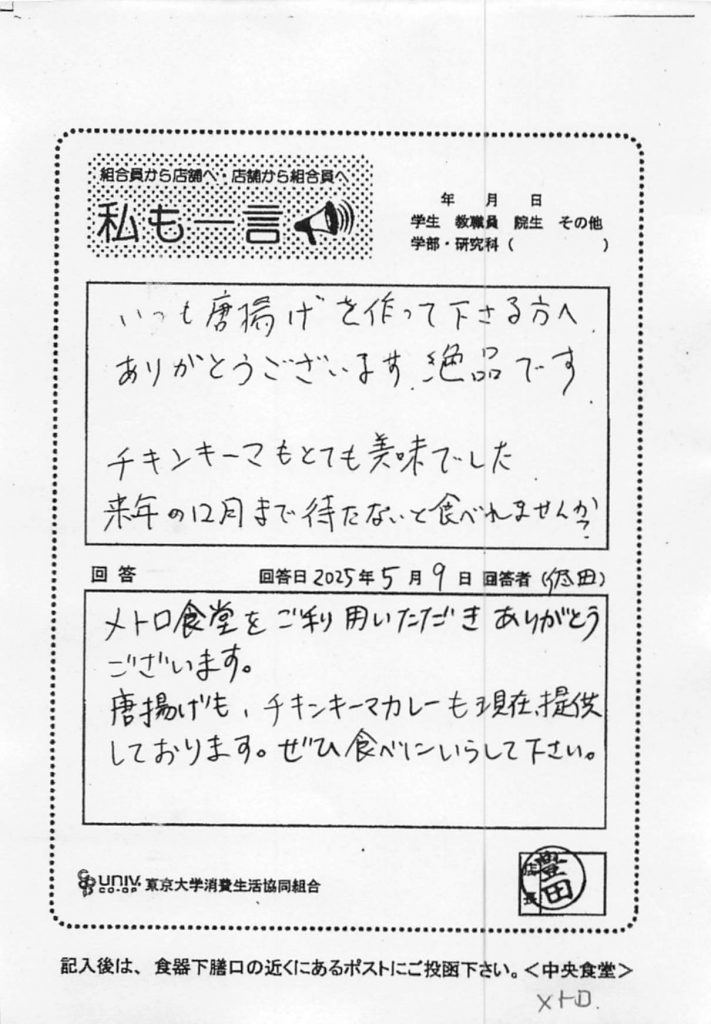 組合員から店舗へ・店舗から組合員へ
私も一言
年 月 日
学生 教職員 院生 その他
学部・研究科( )
いつも唐揚げを作って下さる方へ
ありがとうございます 絶品です
チキンキーマもとても美味でした
来年の12月まで待たないと食べれませんか?
回答 回答日 2025年5月9日 回答者
メトロ食堂をご利用いただきありがとう
ございます。
唐揚げも、チキンキーマカレーも現在提供
しております。ぜひ食べにいらして下さい。
UNIV. CO-OP 東京大学消費生活協同組合
店長 豊田
記入後は、食器下膳口の近くにあるポストにご投函下さい。<中央食堂>
メトロ.